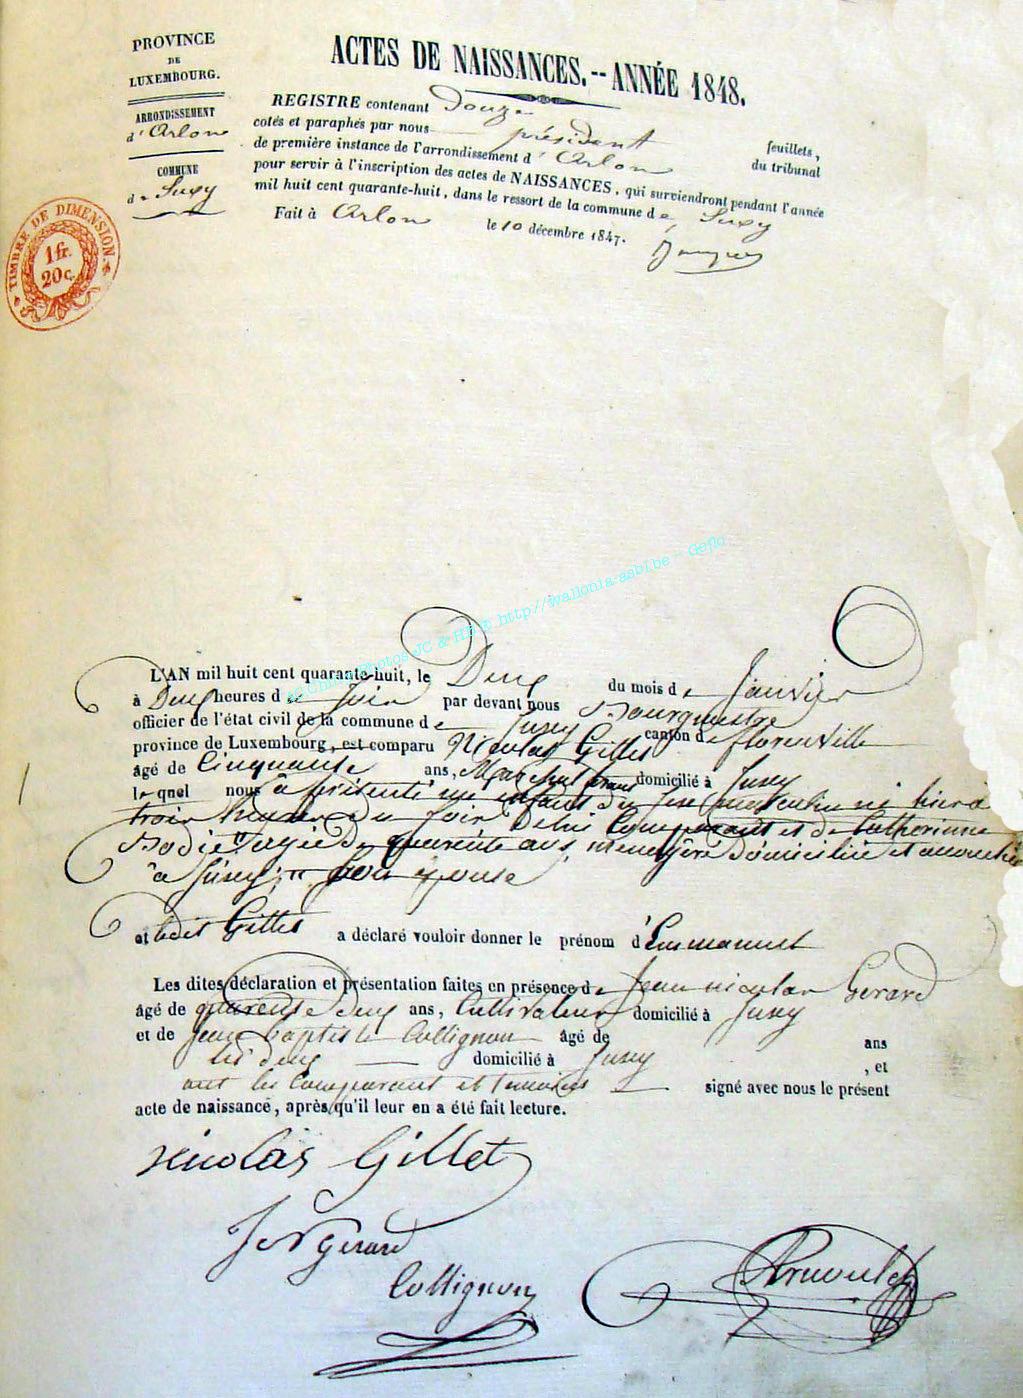 PROVINCE
DE
LUXEMBOURG.
ARRONDISSEMENT
d'Arlon
COMMUNE
de Suxy
TIMBRE DE DIMENSION.
1 fr.
20 c.
ACTES DE NAISSANCES.--ANNÉE 1848.
REGISTRE contenant Douze feuillets,
cotés et paraphés par nous président du tribunal
de première instance de l'arrondissement d'Arlon
pour servir à l'inscription des actes de NAISSANCES, qui surviendront pendant l'année
mil huit cent quarante-huit, dans le ressort de la commune de Suxy
Fait à Arlon le 10 décembre 1847.
http://wallonia-asbl.be - Geflo
L'AN mil huit cent quarante-huit, le Deux du mois de Janvier
à Deux heures de Soir par devant nous Bourgmestre
officier de l'état civil de la commune de Suxy canton de florenville
province de Luxembourg, est comparu Nicolas Gillet
âgé de Cinquante ans, Marechal ferant domicilié à Suxy
lequel nous à présenté un enfant du sexe masculin né hier à
trois heures du soir Delui Comparant et de Catherinne
agée de quarente ans, menagére Domiciliée et accouchée
à Suxy, Son épouse
et ledit Gillet a déclaré vouloir donner le prénom d'Emmanuel
Les dites déclaration et présentation faites en présence de Jean nicolas Gerard
âgé de quarente deux ans, Cultivateur domicilié à Suxy
et de Jean baptiste Collignon âgé de ans
domicilié à Suxy , et
ont les Comparant et temoins signé avec nous le présent
acte de naissance, après qu'il leur en a été fait lecture.
Nicolas Gillet
J N Gerard
Collignon